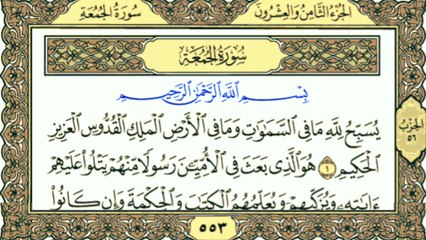 سُورَةُ الجُمُعَةِ
الجُزْءُ الثَّامِنُ وَالعِشْرُونَ
سُورَةُ الجُمُعَةِ
بِسْمِ اللَّهِ الرَّحْمَٰنِ الرَّحِيمِ
يُسَبِّحُ لِلَّهِ مَا فِي السَّمَٰوَٰتِ وَمَا فِي الْأَرْضِ الْمَلِكِ الْقُدُّوسِ الْعَزِيزِ
الْحَكِيمِ ١ هُوَ الَّذِي بَعَثَ فِي الْأُمِّيِّـۧنَ رَسُولًا مِّنْهُمْ يَتْلُوا عَلَيْهِمْ
ءَايَٰتِهِ وَيُزَكِّيهِمْ وَيُعَلِّمُهُمُ الْكِتَٰبَ وَالْحِكْمَةَ وَإِن كَانُوا
الحِزْبُ
٥٦
٥٥٣